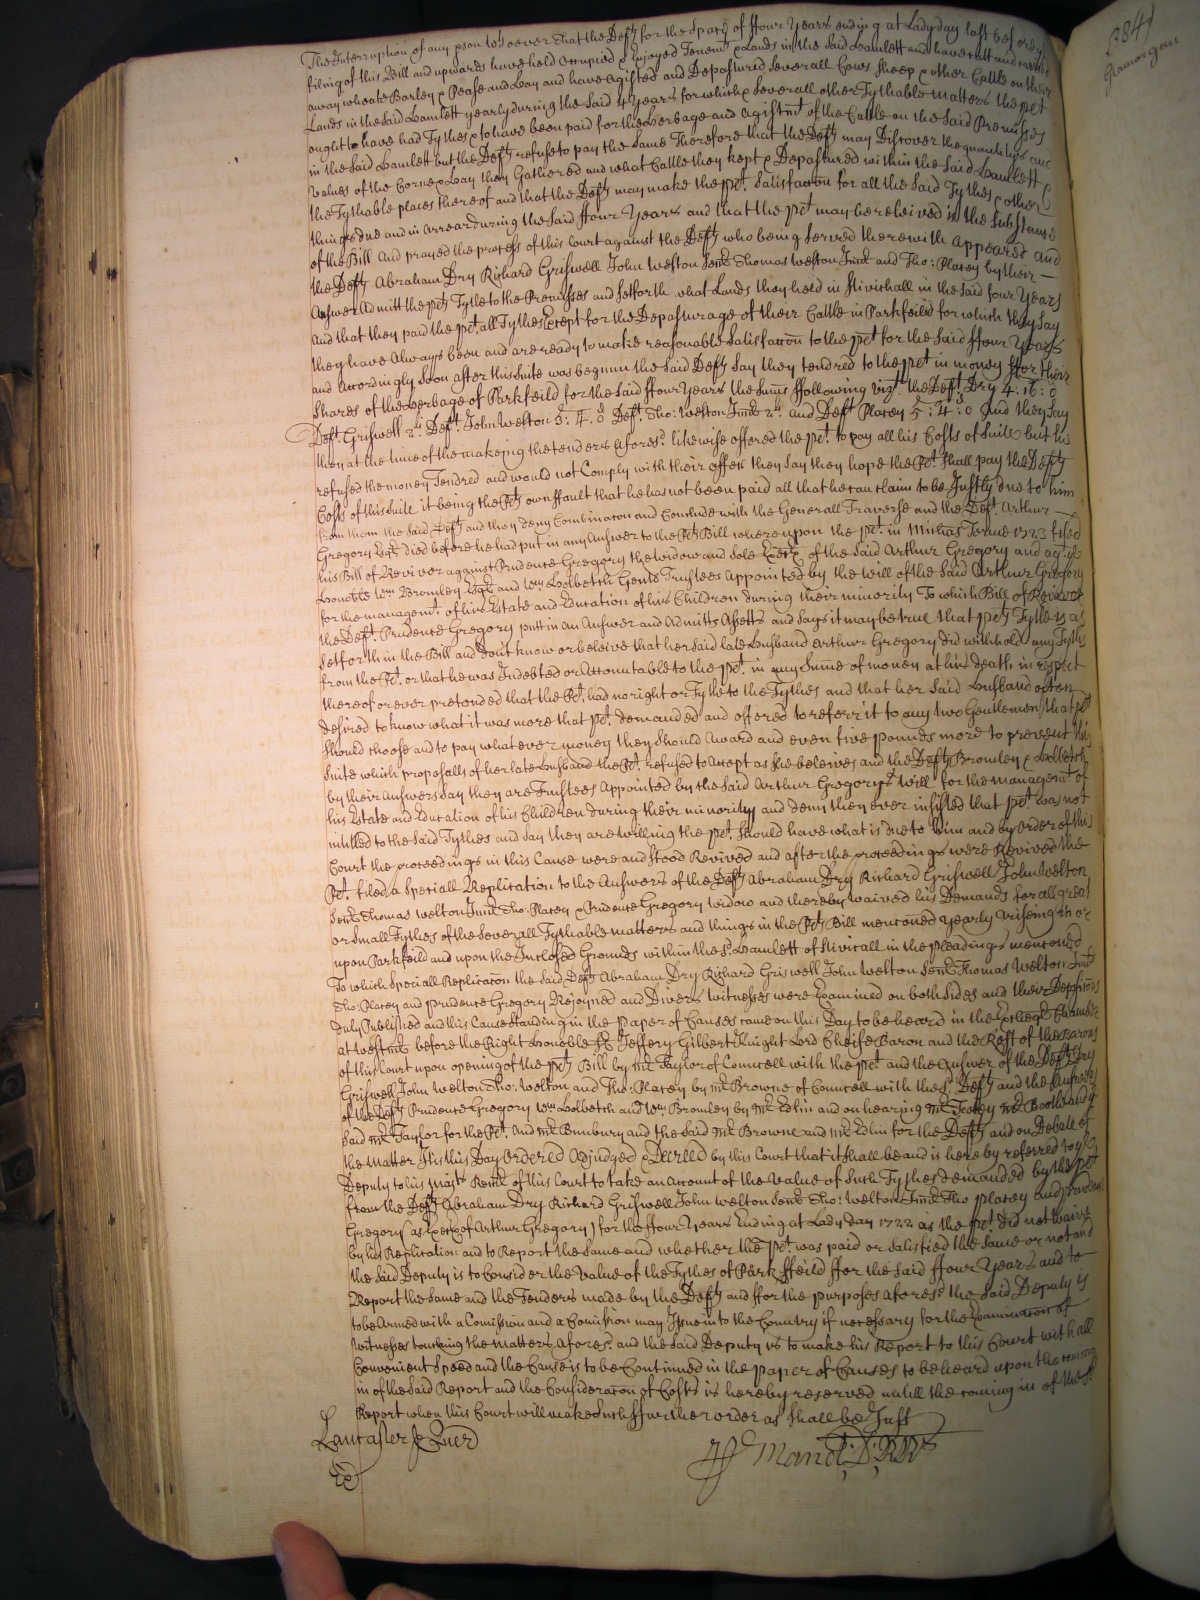 The Interruption of any pson whosoever That the Defts for the Space of ffour Years ending at Ladyday last before the
filing of this Bill and upwards have held Occupied & Enjoyed Tenemts & Lands in the Said Hamlett and have cutt and carried
away wheate Barley & Pease and Hay and have agisted and Depastured Severall Cows Sheep & other Cattle on their
Lands in the Said Hamlett yearly during the Said 4 Years for which & Severall other Tythable matters the plt
ought to have had Tythes & to have been paid for the Herbage and agistmt of the Cattle on the Said Premisses
in the Said Hamlett but the Defts refuse to pay the Same Therefore that the Defts may Discover the quantitys and
values of the Corne & Hay they Gathered and what Cattle they kept & Depastured within the Said Hamlett &
the Tythable places thereof and that the Defts may make the plt Satisfaccon for all the Said Tythes & other
things due and in Arrear during the Said ffour Years and that the plt may be releived in the Substance
of the Bill And prayed the process of this Court against the Defts who being Served therewith appeared and
the Defts Abraham Dry Richard Griswell John Welton Senr Thomas Welton Junr and Tho: Placey by their
Answer Admitt the plts Tytle to the Premisses and Setforth what Lands they held in Stivichall in the Said four Years
And that they paid the plt all Tythes Except for the Depasturage of their Cattle in Parkfeild for which they Say
they have Always been and are ready to make reasonable Satisfaccon to the plt for the Said ffour Years
and Accordingly Soon after this Suite was begunn the Said Defts Say they tendred to the plt in money ffor their
Shares of the Herbage of Parkfeild for the Said ffour Years the Sums ffollowing vizt the Deft Dry 4: 16: 0
Deft Griswell 2s: Deft John Welton 3: 4: 0 Deft Tho: Welton Junr 2s: and Deft Placey 5: 4: 0 And they Say
they at the time of the making the tenders aforesd likewise offered the plt to pay all his Costs of Suite but he
refused the money Tendred and would not Comply with their offers they Say they hope the Plt Shall pay the Defts
Costs of this Suite it being the Plts own ffault that he has not been paid all that he can claim to be Justly due to him
from them the Said Defts and they deny Combinacon and Conclude with the Generall Traverse and the Deft Arthur
Gregory Esqr died before he had put in any Answer to the Plts Bill whereupon the plt in Michas Terme 1723 filed
his Bill of Revivor against Prudence Gregory the widow and Sole Extrx of the Said Arthur Gregory and agt ye
Honoble Wm Bromley Esqr and Wm Holbech Gents Trustees Appointed by the will of the Said Arthur Gregory
for the managemt of his Estate and Education of his Children during their minority To which Bill of Revivor
the Deft Prudence Gregory putt in an Answer and Admitts Assetts and Says it may be true that plts Tytle is as
Setforth in the Bill and dont know or beleive that her Said late Husband Arthur Gregory did withhold any Tythes
from the Plt or that he was Indebted or Accountable to the plt in any Sume of money at his death in respect
thereof or ever pretended that the Plt had no right or Tytle to the Tythes and that her Said Husband often
desired to know what it was more that plt demanded and offered to referr it to any two Gentlemen that plt
Should choose and to pay whatever money they Should Award and even five pounds more to prevent this
Suite which proposalls of her late Husband the Plt refused to Accept as She beleives and the Defts Bromley & Holbech
by their Answers Say they are Trustees Appointed by the Said Arthur Gregorys Will for the managemt of
his Estate and Education of his Children during their minority and deny they ever insisted that plt was not
intitled to the Said Tythes and Say they are willing the plt Should have what is due to him and by Order of this
Court the proceedings in this Cause were and Stood Revived and after the proceedings were Revived the
Plt filed a Speciall Replication to the Answers of the Defts Abraham Dry Richard Griswell John Welton
Senr Thomas Welton Junr Tho: Placey & Prudence Gregory widow and thereby waived his Demands for all great
or Small Tythes of the Severall Tythable matters and things in the Plts Bill menconed yearly ariseing
upon Parkfeild and upon the Inclosed Grounds within the sd Hamlett of Stivicall in the pleadings menconed
To which Speciall Replicacon the Said Defts Abraham Dry Richard Griswell John Welton Senr Thomas Welton Junr
Tho: Placey and Prudence Gregory Rejoyned and Divers witnesses were Examined on both Sides and their Deposicons
Duly Published and this Cause Standing in the paper of Causes came on this Day to be heard in the Excheqr Chamber
at Westmr before the Right Honoble Sr Jeffery Gilbert Knight Lord Cheife Baron and the Rest of the Barons
of this Court upon opening of the plts Bill by mr Taylor of Councell with the plt and the Answer of the Defts Dry
Griswell John Welton Tho: Welton and Tho: Placey by mr Browne of Councell with the sd Defts and the Answers
of the Defts Prudence Gregory Wm Holbech and Wm Bromley by mr Edlin and on hearing mr mr Bootle and ye
Said mr Taylor for the Plt And mr Bunbury and the Said mr Browne and mr Edlin for the Defts and on Debate of
the Matter It is this Day Ordered Adjudged & Decreed by this Court that it Shall be and is hereby referred to ye
Deputy to his Majts Remr of this Court to take an Account of the Value of Such Tythes demanded by the plt
from the Defts Abraham Dry Richard Griswell John Welton Senr Tho: Welton Junr Tho Placey and Prudence
Gregory (as Extrx of Arthur Gregory) for the ffour Years Ending at Lady Day 1722 as the plt did not waive
by his Replication and to Report the Same and whether the plt was paid or Satisfied the Same or not and
the Said Deputy is to Consider the Value of the Tythes of Park ffeild ffor the Said ffour Years and to
Report the Same and the Tenders made by the Defts and ffor the purposes aforesd the Said Deputy is
to be Armed with a Comission and a Comission may Issue into the Country if necessary for the Examinacon of
witnesses touching the matters aforesd and the Said Deputy is to make his Report to this Court with all
Convenient Speed and the Cause is to be Continued in the paper of Causes to be heard upon the coming
in of the Said Report and the Consideracon of Costs is hereby reserved untill the coming in of the sd
Report when this Court will make Such ffurther order as Shall be Just
Lancaster
Mand
384
Glamorgan